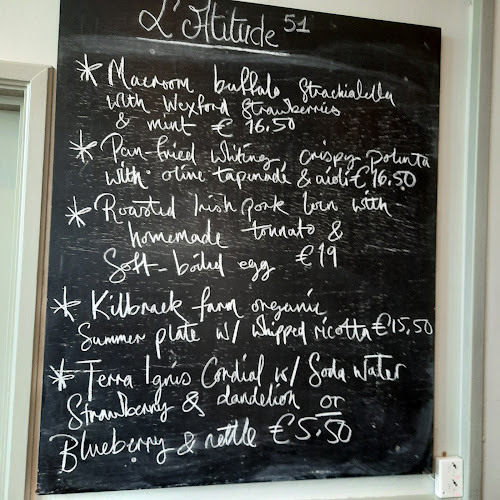 L'Atitude 51
* Macroom buffalo Strachiatella
with Wexford Strawberries
& mint € 16.50
* Pan-fried whiting, crispy polenta
with olive tapenade & aioli € 16.50
* Roasted Irish pork loin with
homemade tonnato &
Soft-boiled egg €19
* Kilbrack farm organic
Summer plate w/ whipped ricotta €15.50
* Terra Ignis Cordial w/ Soda water
Strawberry & dandelion or
Blueberry & nettle €5.50